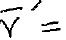 v̅′ =